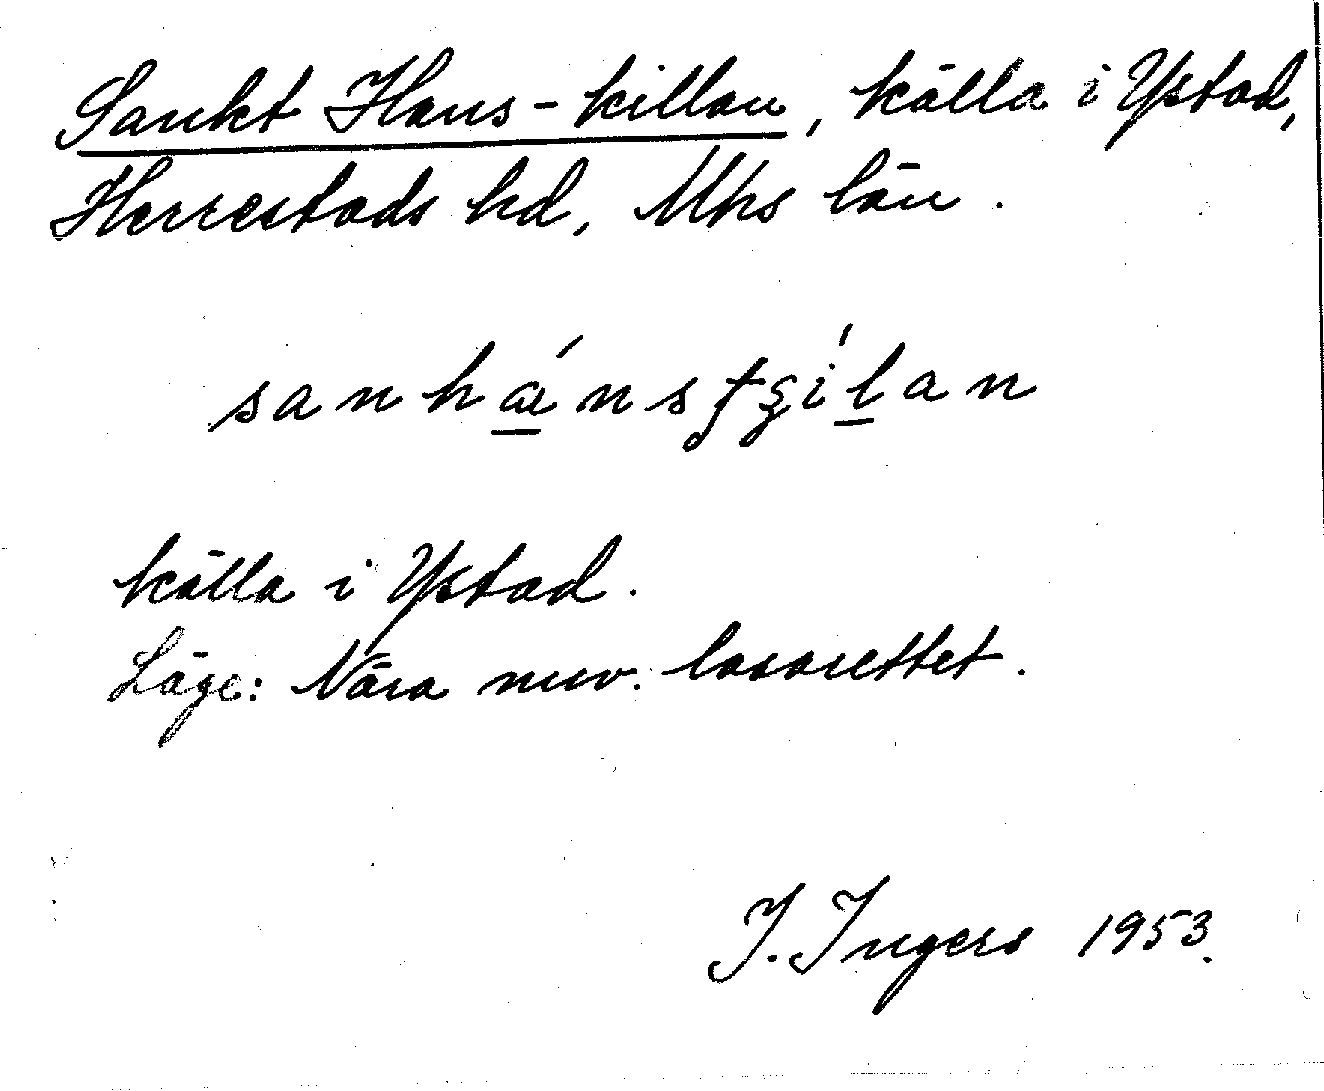 Sankt Hans-killan, källa i Ystad,
Herrestads hd, Mhs län.
sanhǽnsʄʂílan
källa i Ystad.
Läge: Nära nuv. lasarettet.
I. Ingers 1953.